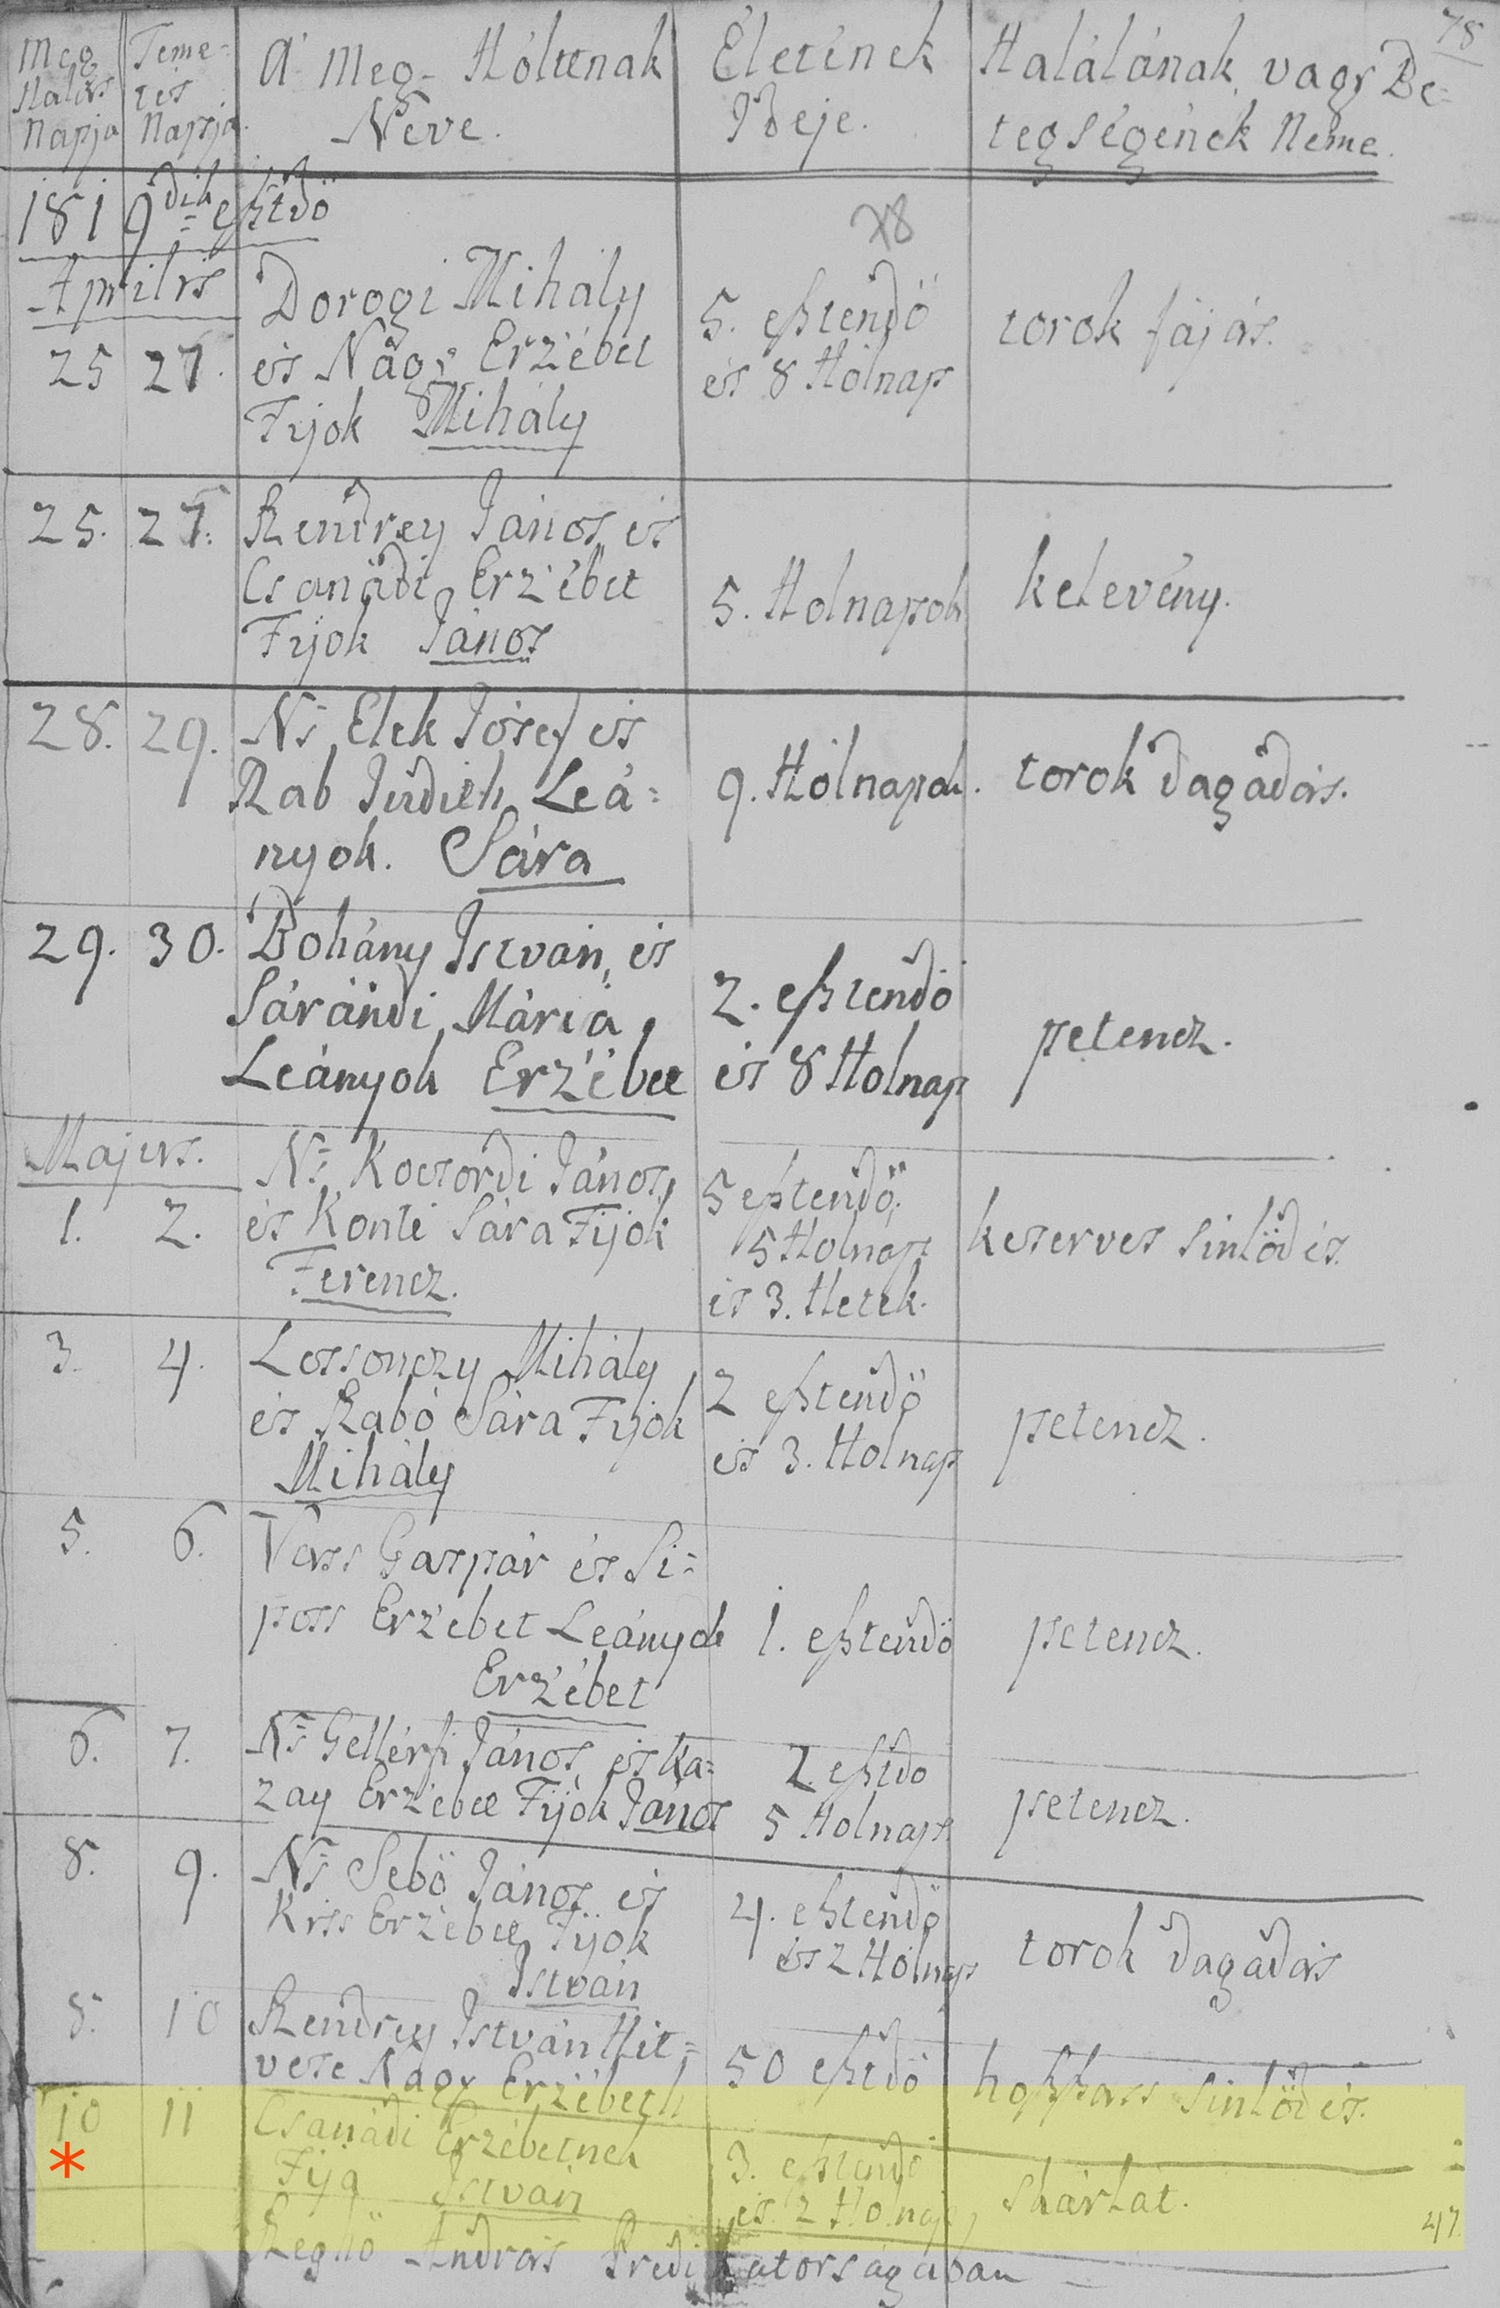 78
Meg Halás Napja
Temetés Napja.
A' Meg-Hóltnak
Neve.
Életének
Ideje.
Halálának, vagy Be=
tegségének Neme.
1819dik esztdő
78
Aprilis
25 27.
Dorogi Mihály
és Nagy Erzsébet
Fijok Mihály
5. esztendő
és 8 Holnap
torok fájás.
25. 27.
Szendrey János és
Csanádi Erzsébet
Fijok János
5. Holnapok
kelevény.
28. 29.
Ns Elek Jósef és
Rab Judith Leá=
nyok. Sára
9. Hólnapok.
torok dagadás.
29. 30.
Bohány István, és
Sárándi Mária
Leányok Erzsébet
2. esztendő
és 8 Holnap
petencz.
Majus.
1. 2.
Ns Kocsordi János,
és Konti Sára Fijok
Ferencz.
5 esztendő,
5 Holnap
és 3. Hetek.
keserves sinlődés.
3. 4.
Lossonczy Mihály
és Szabó Sára Fijok
Mihály
2 esztendő
és 3. Holnap
petencz.
5. 6.
Vass Gaspár és Si=
poss Erzsebet Leányok
Erzsébet
1. esztendő
petencz.
6. 7.
Ns Gellérfi János, és Ka=
zay Erzsebet Fijok János
2 esztdő
5 Holnap
petencz.
8. 9.
Ns Sebő János és
Kiss Erzsebet Fijok
István
4. esztendő
és 2 Hólnap
torok dagadás
8. 10
Szendrey István Hit=
vese Nagy Erzsébeth
50 esztdő
hoszszass sinlődés.
10 11
Csanádi Erzsébetnek
Fija István
3. esztendő
és 2 Holnap
skárlát.
*
47.
András Prédikátorságában